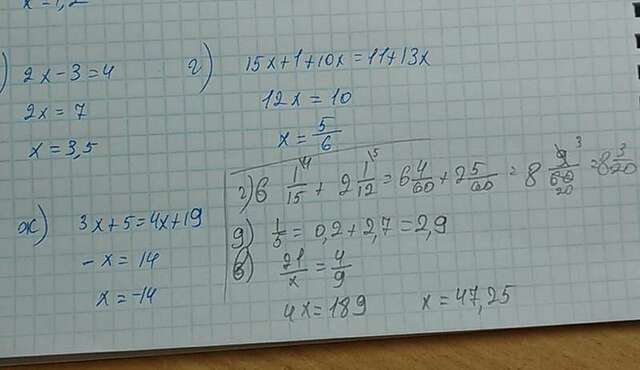 x=1,2
) 2x-3=4
2x=7
x=3,5
г) 15x+1+10x=11+13x
12x=10
x=5/6
г) 6 1/15 \4 + 2 1/12 \5 = 6 4/60 + 2 5/60 = 8 9/60 3 20 = 8 3/20
ж) 3x+5=4x+19
-x=14
x=-14
д) 1/5 = 0,2+2,7=2,9
в) 21/x = 4/9
4x=189 x=47,25